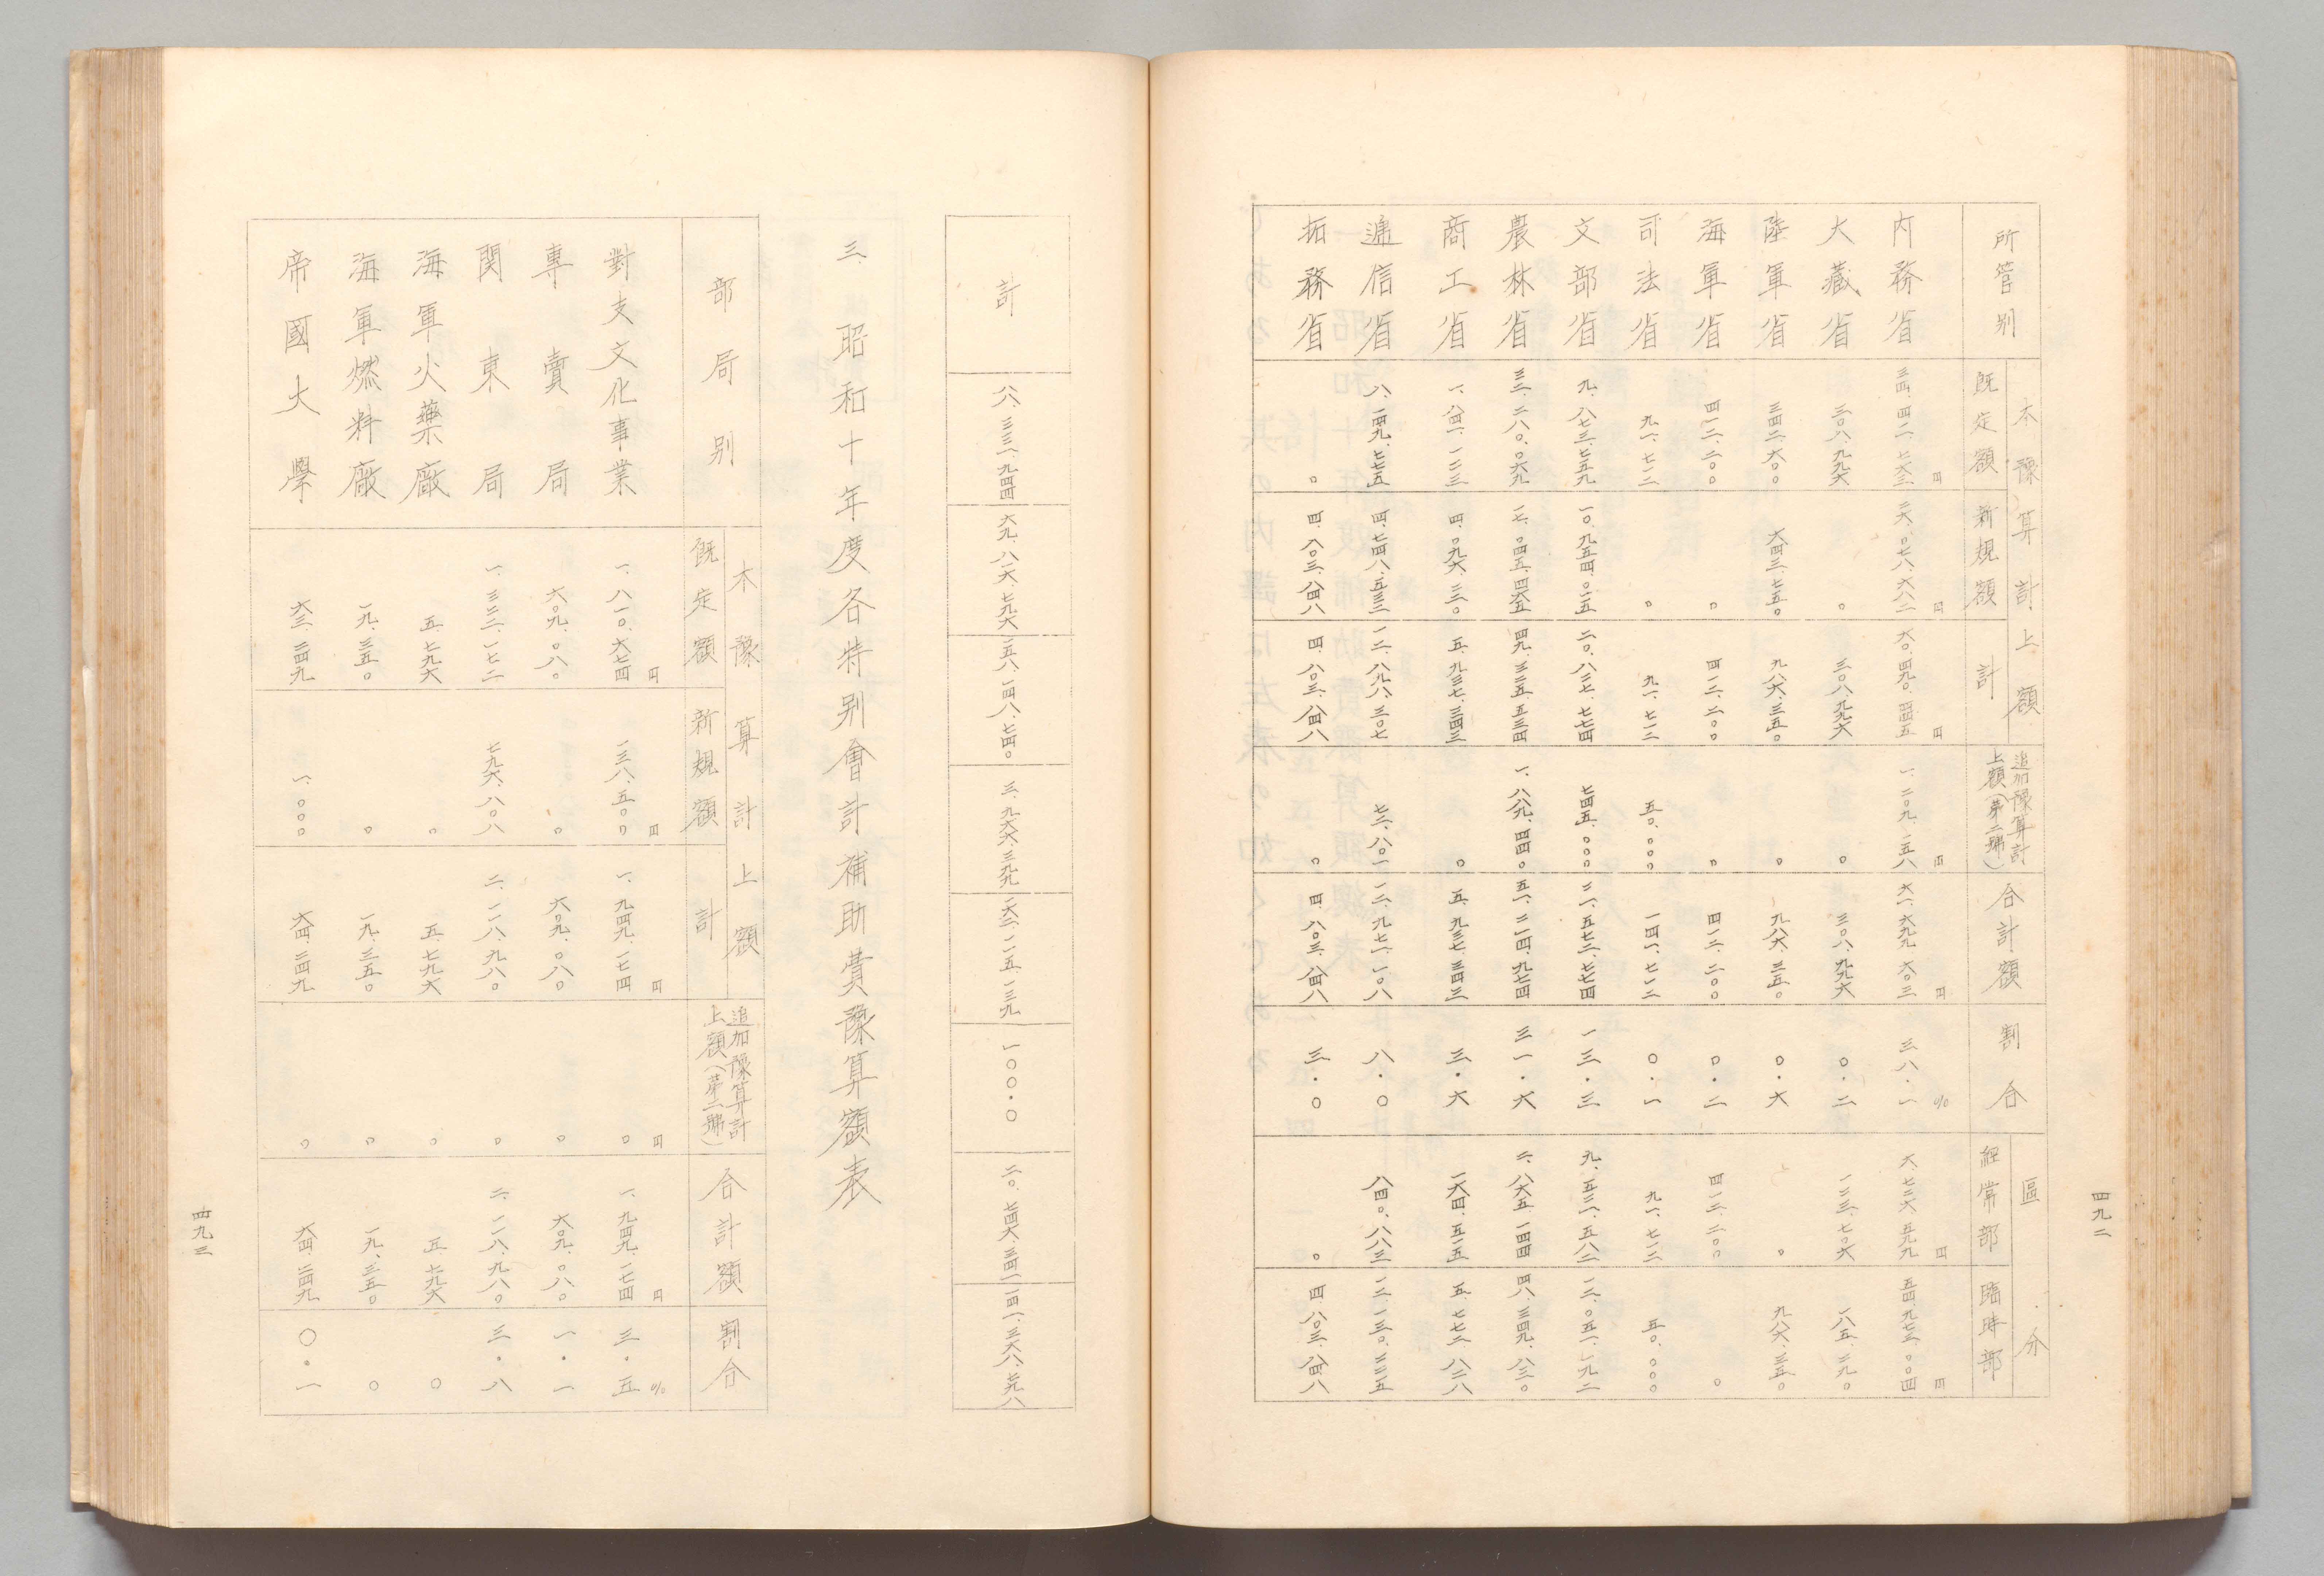 四九二
所管別
本豫算計上額
既定額
新規額
計
追加豫算計
上額(第二號)
合計額
割合
區分
經常部
臨時部
內務省 三四、四一一、七六三円 二六、〇七八、六八二円 六〇、四九〇、四四五円 一、二〇九、一五八円 六一、六九九、六〇三円 三八・一% 六、七二六、五九九円 五四、九七三、〇〇四円
大藏省 三〇八、九九六 〇 三〇八、九九六 〇 三〇八、九九六 〇・二 一二三、七〇六 一八五、二九〇
陸軍省 三四二、六〇〇 六四三、七五〇 九八六、三五〇 〇 九八六、三五〇 〇・六 〇 九八六、三五〇
海軍省 四一二、二〇〇 〇 四一二、二〇〇 〇 四一二、二〇〇 〇・二 四一二、二〇〇 〇
司法省 九一、七一二 〇 九一、七一二 五〇、〇〇〇 一四一、七一二 〇・一 九一、七一二 五〇、〇〇〇
文部省 九、八七三、七五九 一〇、九五四、〇一五 二〇、八二七、七七四 七四五、〇〇〇 二一、五七二、七七四 一三・三 九、五二一、五八二 一二、〇五一、一九二
農林省 三二、二八〇、〇六九 一七、〇四五、四六五 四九、三二五、五三四 一、八八九、四四〇 五一、二一四、九七四 三一・六 二、八六五、一四四 四八、三四九、八三〇
商工省 一、八四一、一二三 四、〇九六、二二〇 五、九三七、三四三 〇 五、九三七、三四三 三・六 一六四、五一五 五、七七二、八二八
遞信省 八、一四九、七七五 四、七四八、五三二 一二、八九八、三〇七 七二、八〇一 一二、九七一、一〇八 八・〇 八四〇、八八三 一二、一三〇、二二五
拓務省 〇 四、八〇三、八四八 四、八〇三、八四八 〇 四、八〇三、八四八 三・〇 〇 四、八〇三、八四八
計 八八、三三一、九四四 六九、八一六、七九六 一五八、一四八、七四〇 三、九六六、三九九 一六二、一一五、一三九 一〇〇・〇 二〇、七四六、三四一 一四一、三六八、七九八
三、昭和十年度各特別會計補助費豫算額表
部局別
本豫算計上額
既定額
新規額
計
追加豫算計
上額(第二號)
合計額
割合
對支文化事業 一、八一〇、六七四円 一三八、五〇〇円 一、九四九、一七四円 〇円 一、九四九、一七四円 三・五%
專賣局 六〇九、〇八〇 〇 六〇九、〇八〇 〇 六〇九、〇八〇 一・一
関東局 一、三二二、一七二 七九六、八〇八 二、一一八、九八〇 〇 二、一一八、九八〇 三・八
海軍火藥廠 五、七九六 〇 五、七九六 〇 五、七九六 〇
海軍燃料廠 一九、三五〇 〇 一九、三五〇 〇 一九、三五〇 〇
帝國大學 六三、二四九 一、〇〇〇 六四、二四九 〇 六四、二四九 〇・一
四九三